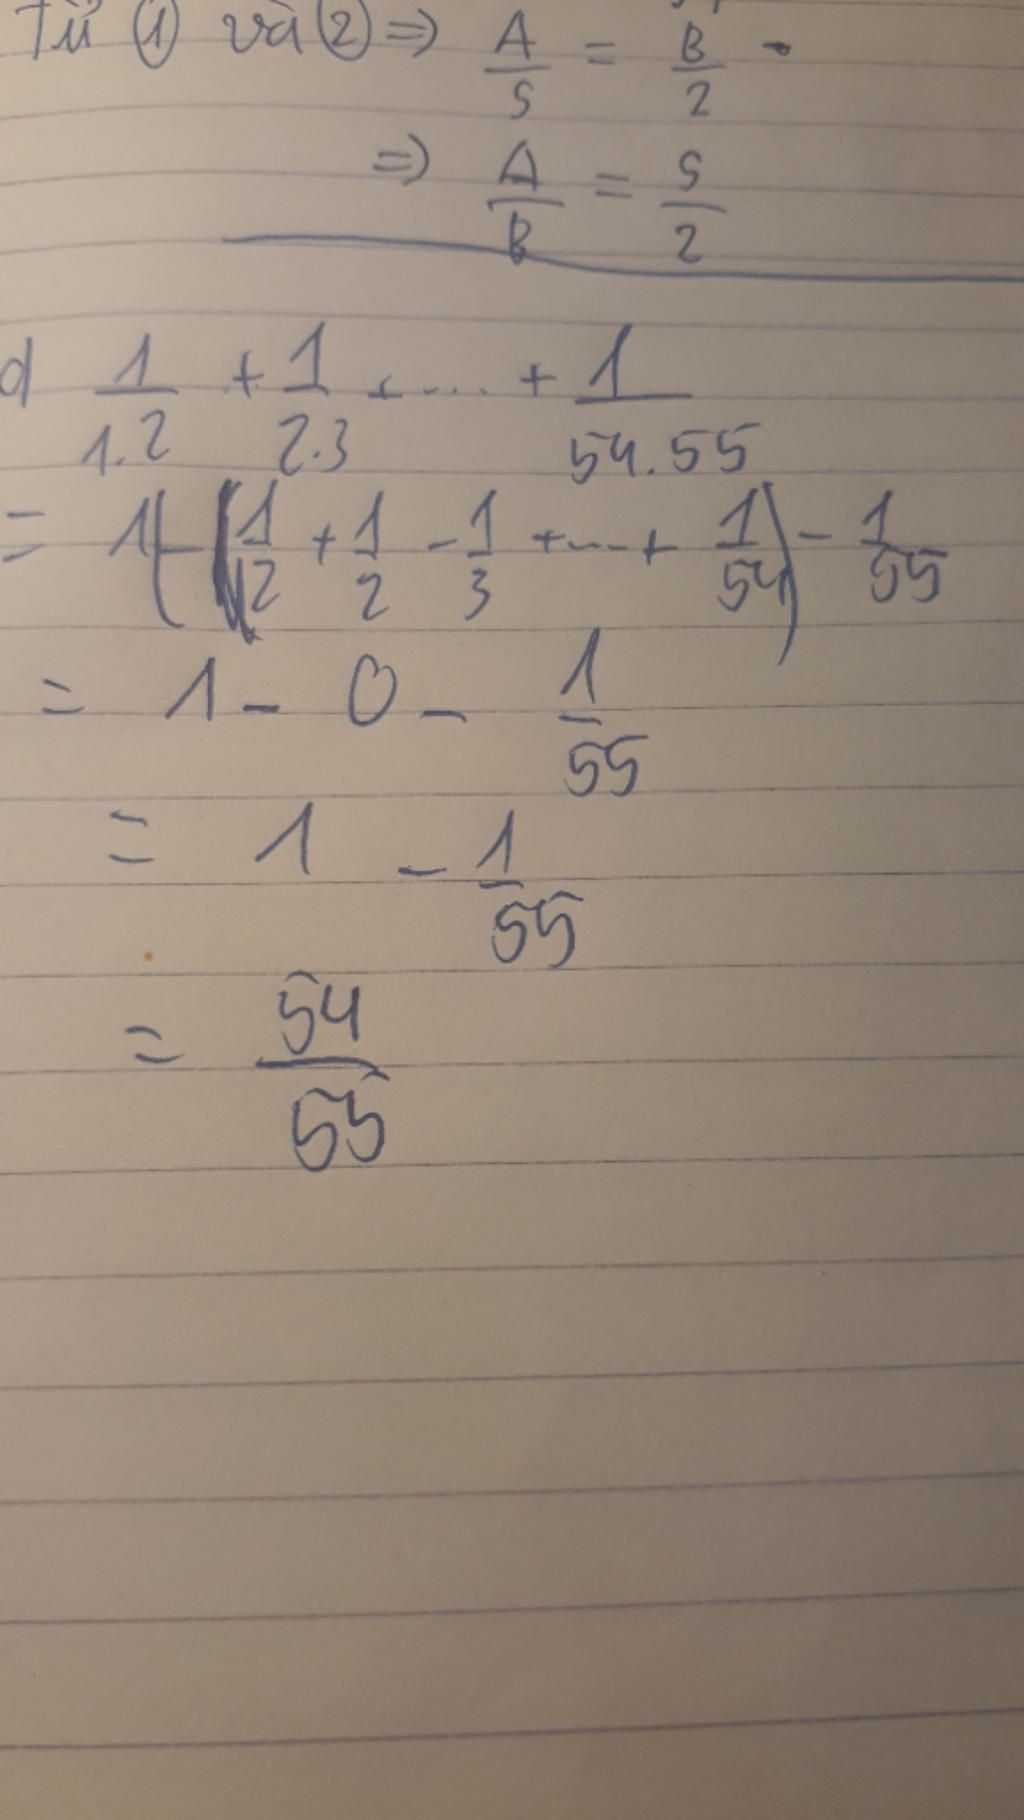 Từ (1) và (2) => A/5 = B/2
=> A/B = 5/2
d 1/1.2 + 1/2.3 + .... + 1/54.55
= 1(-1/2 + 1/2 - 1/3 + ... + 1/54) - 1/55
= 1 - 0 - 1/55
= 1 - 1/55
= 54/55